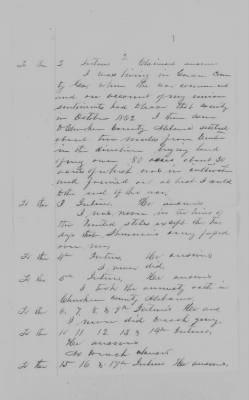 2
To the 2 Interrs. Claimant answers
I was living in Coun
ty Ga, when the war commenced
and on account of my union
sentiments had to leave that County
in October 1862 I then came
to Cherokee County Alabama settled
about two miles from Center
in the direction land
of my own 80 acres about 30
acres of which was in cultivation
and farmed on it best I could
to the end of the war.
To the 3 Interrs. He answers
I was never in the lines of
the United States except the few
days that Shermans army passed
over us.
To the 4th Interrs. He answers
I never did.
To the 5th Interrs. He answers
I took the amnesty oath in
Cherokee County Alabama.
To the 6, 7, 8 & 9th Interrs He ans
I never did
To the 10 11 12 13 & 14th Interrs.
He answers
To each
To the 15 16 & 17th Interrs He answers.